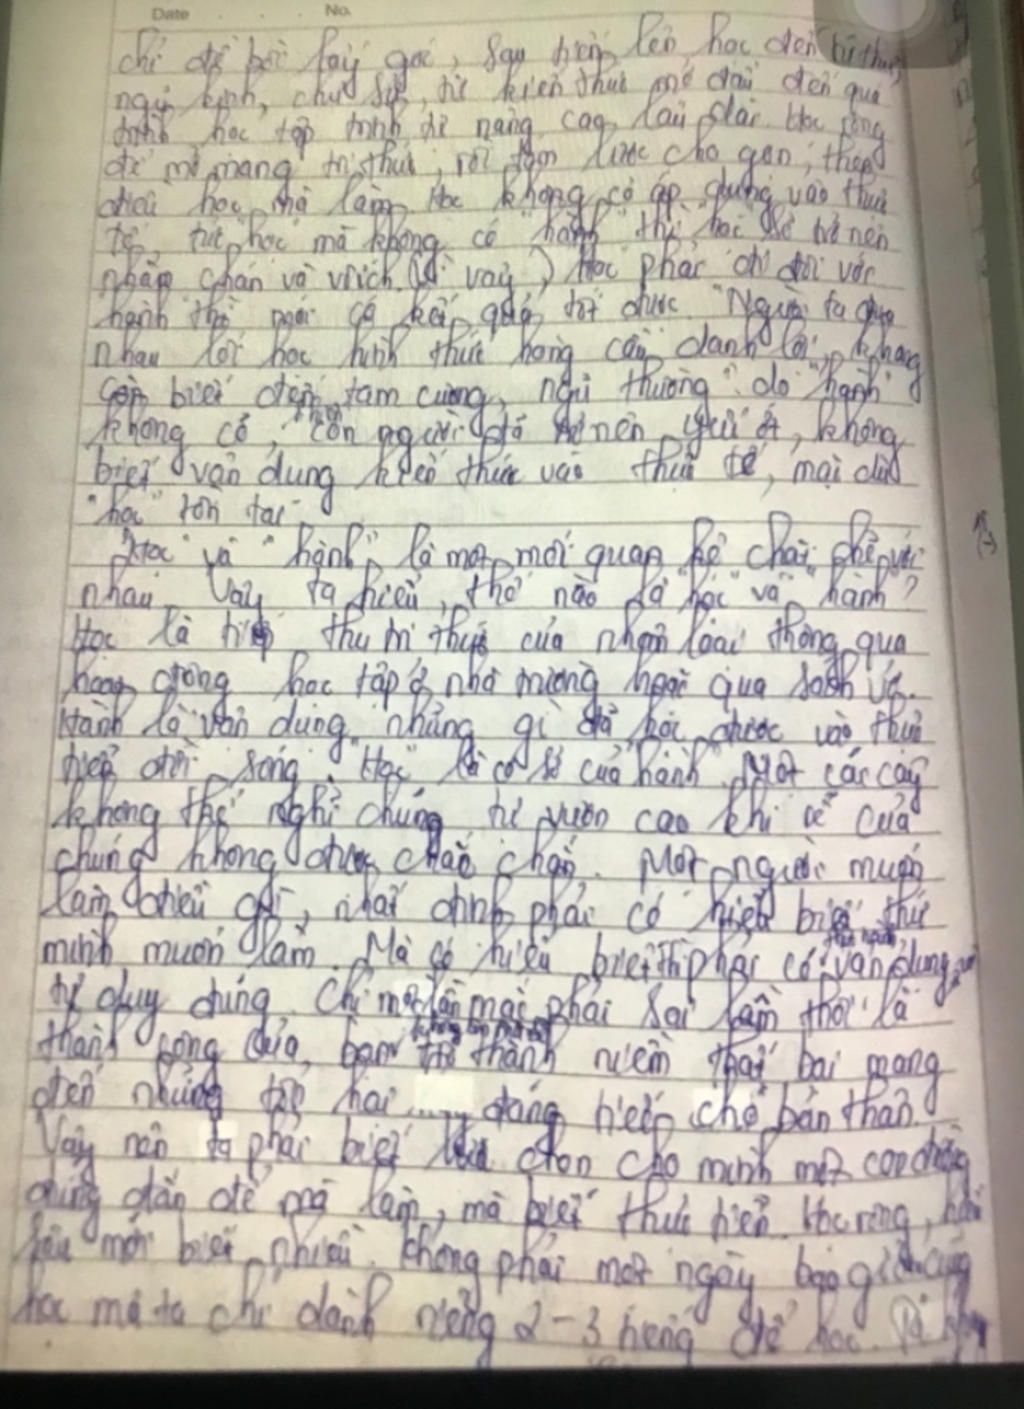 Date No.
chỉ để bồi lấy gốc, sau tiến lên học đến tứ thư,
ngũ kinh, chư sử, từ kiến thức mở đầu đến quá
trình học tập mình để nâng cao lâu dài. Học rộng
để mở mang tri thức, rồi tóm lược cho gọn, theo
điều học mà làm. Học không có áp dụng vào thực
tế, tức học mà không có "hành" thì học sẽ trở nên
nhàm chán và Học phải đi đôi với
hành thì mới có kết quả tốt được. "Người ta đua
nhau lối học hình thức hòng cầu danh lợi, không
còn biết đến tam cương, ngũ thường" do "hành"
không có, nên con người đó nên yếu ớt, không
biết vận dụng kiến thức vào thực tế, mặc dù
"học" tồn tại.
"Học" và "hành" là một mối quan hệ chặt chẽ với
nhau. Vậy ta hiểu thế nào là "học" và "hành"?
Học là tiếp thu tri thức của nhân loại thông qua
hoạt động học tập ở nhà trường hoặc qua sách vở.
Hành là vận dụng những gì đã học được vào thực
tiễn đời sống. "Học" là cơ sở của "hành". Một các cây
không thể nghĩ chúng tự vươn cao khi rễ của
chúng không được chắc chắn. Một người muốn
làm điều gì, nhất định phải có hiểu biết thứ
mình muốn làm. Mà có hiểu biết thì phải có vận dụng
tư duy đúng. Chỉ một lần mắc phải sai lầm thôi là
thành công của bạn trở thành niềm thất bại mang
đến những tổn hại ..... đáng tiếc cho bản thân.
Vậy nên ta phải biết lựa chọn cho mình một con đường
đúng đắn để mà làm, mà biết thực hiện. Học rộng, hiểu
sâu mới biết nhiều. Không phải một ngày bao giờ cũng
học mà ta chỉ dành riêng 2-3 tiếng để học.